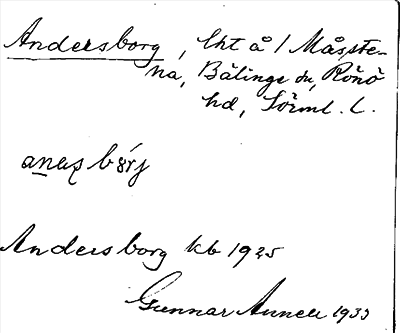 Andersborg, lht å / Måsste-
na, Bälinge sn, Rönö
hd, Sörml. l.
Andersborg kb 1925
Gunnar 1933